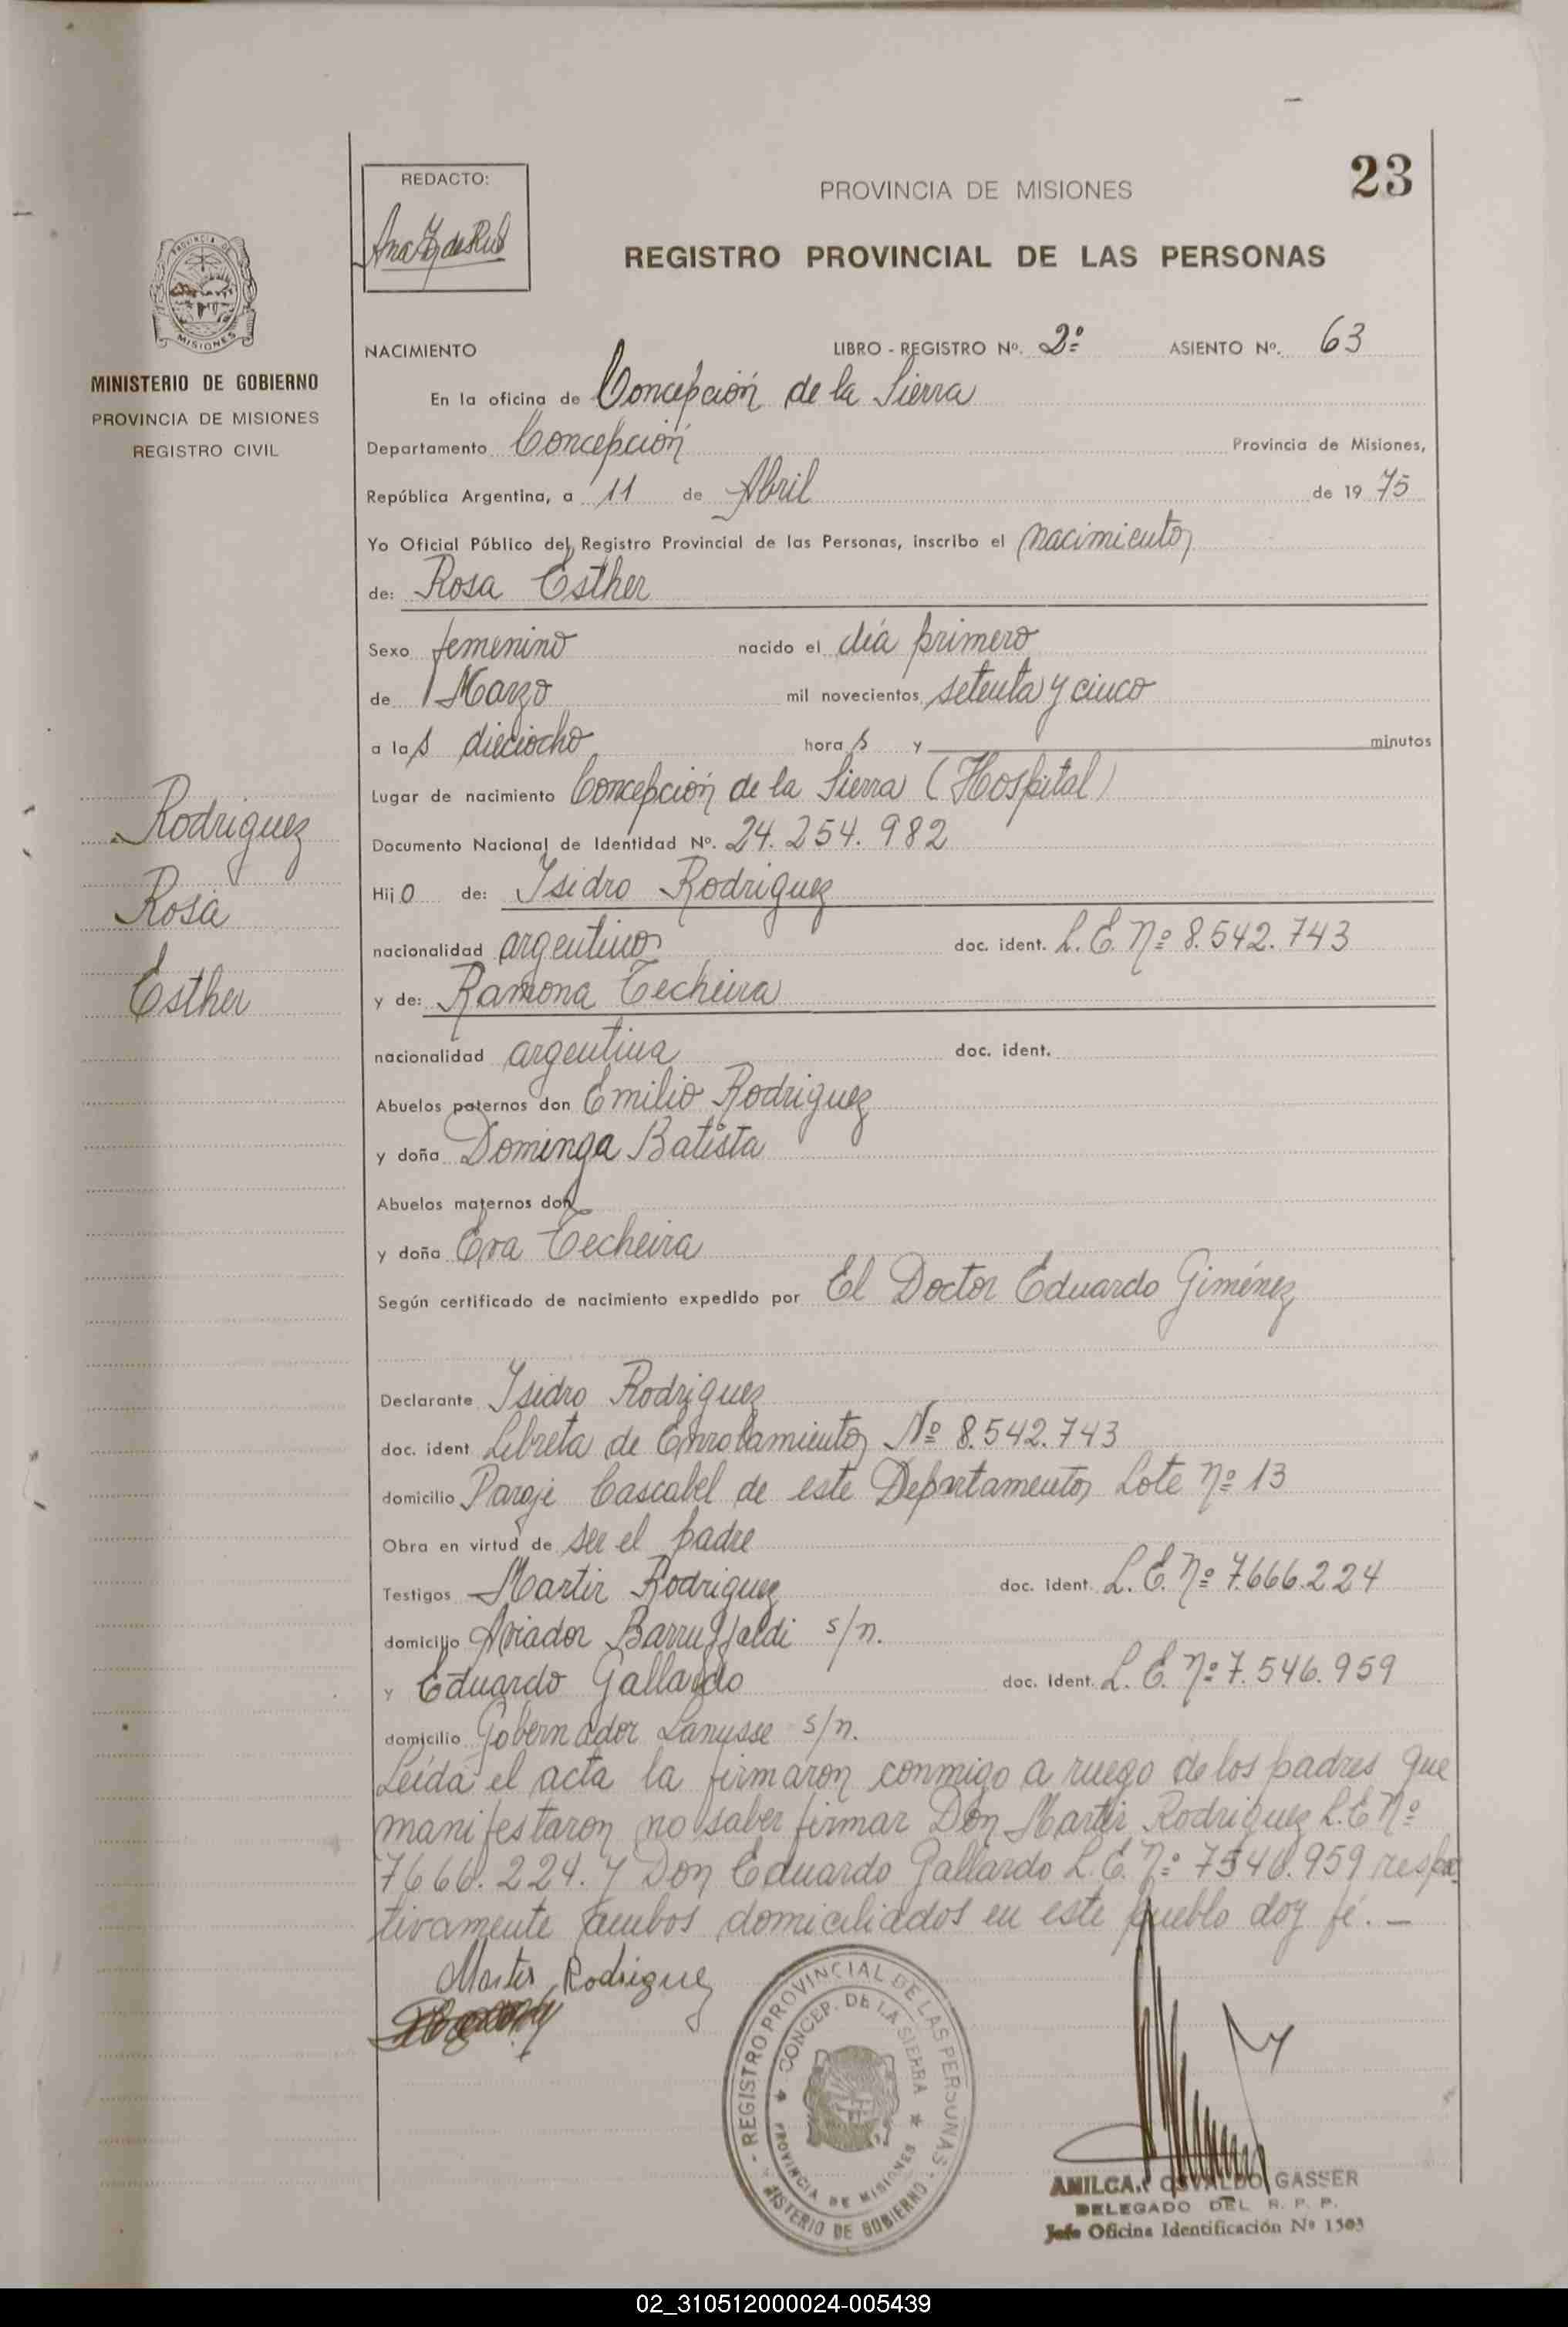 23
REDACTO:
PROVINCIA DE MISIONES
REGISTRO PROVINCIAL DE LAS PERSONAS
PROVINCIA DE
MISIONES
MINISTERIO DE GOBIERNO
PROVINCIA DE MISIONES
REGISTRO CIVIL
Rodriguez
Rosa
Esther
NACIMIENTO LIBRO - REGISTRO Nº. 2º ASIENTO Nº. 63
En la oficina de Concepción de la Sierra
Departamento Concepción Provincia de Misiones,
República Argentina, a 11 de Abril de 1975
Yo Oficial Público del Registro Provincial de las Personas, inscribo el nacimiento
de: Rosa Esther
Sexo femenino nacido el día primero
de Marzo mil novecientos setenta y cinco
a las dieciocho horas y minutos
Lugar de nacimiento Concepción de la Sierra (Hospital)
Documento Nacional de Identidad Nº. 24.254.982
Hijo de: Isidro Rodriguez
nacionalidad argentino doc. ident. L.E. Nº 8.542.743
y de: Ramona Techeira
nacionalidad argentina doc. ident.
Abuelos paternos don Emilio Rodriguez
y doña Dominga Batista
Abuelos maternos don
y doña Eva Techeira
Según certificado de nacimiento expedido por El Doctor Eduardo Giménez
Declarante Isidro Rodriguez
doc. ident Libreta de Enrolamiento Nº 8.542.743
domicilio Paraje Cascabel de este Departamento Lote Nº 13
Obra en virtud de ser el padre
Testigos Martir Rodriguez doc. ident. L.E. Nº 7.666.224
domicilio Aviador Barrufaldi s/n.
y Eduardo Gallardo doc. ident. L.E. Nº 7.546.959
domicilio Gobernador Lanusse s/n.
Leída el acta la firmaron conmigo a ruego de los padres que
manifestaron no saber firmar Don Martir Rodriguez L.E Nº
7666.224. y Don Eduardo Gallardo L.E. Nº 7546.959 respec
tivamente ambos domiciliados en este pueblo doy fé. —
Martir Rodriguez
- REGISTRO PROVINCIAL DE LAS PERSONAS -
CONCEP. DE LA SIERRA
PROVINCIA DE MISIONES
MISTERIO DE GOBIERNO
AMILCAR OSVALDO GASSER
DELEGADO DEL R. P. P.
Jefe Oficina Identificación Nº 1303
02_310512000024-005439